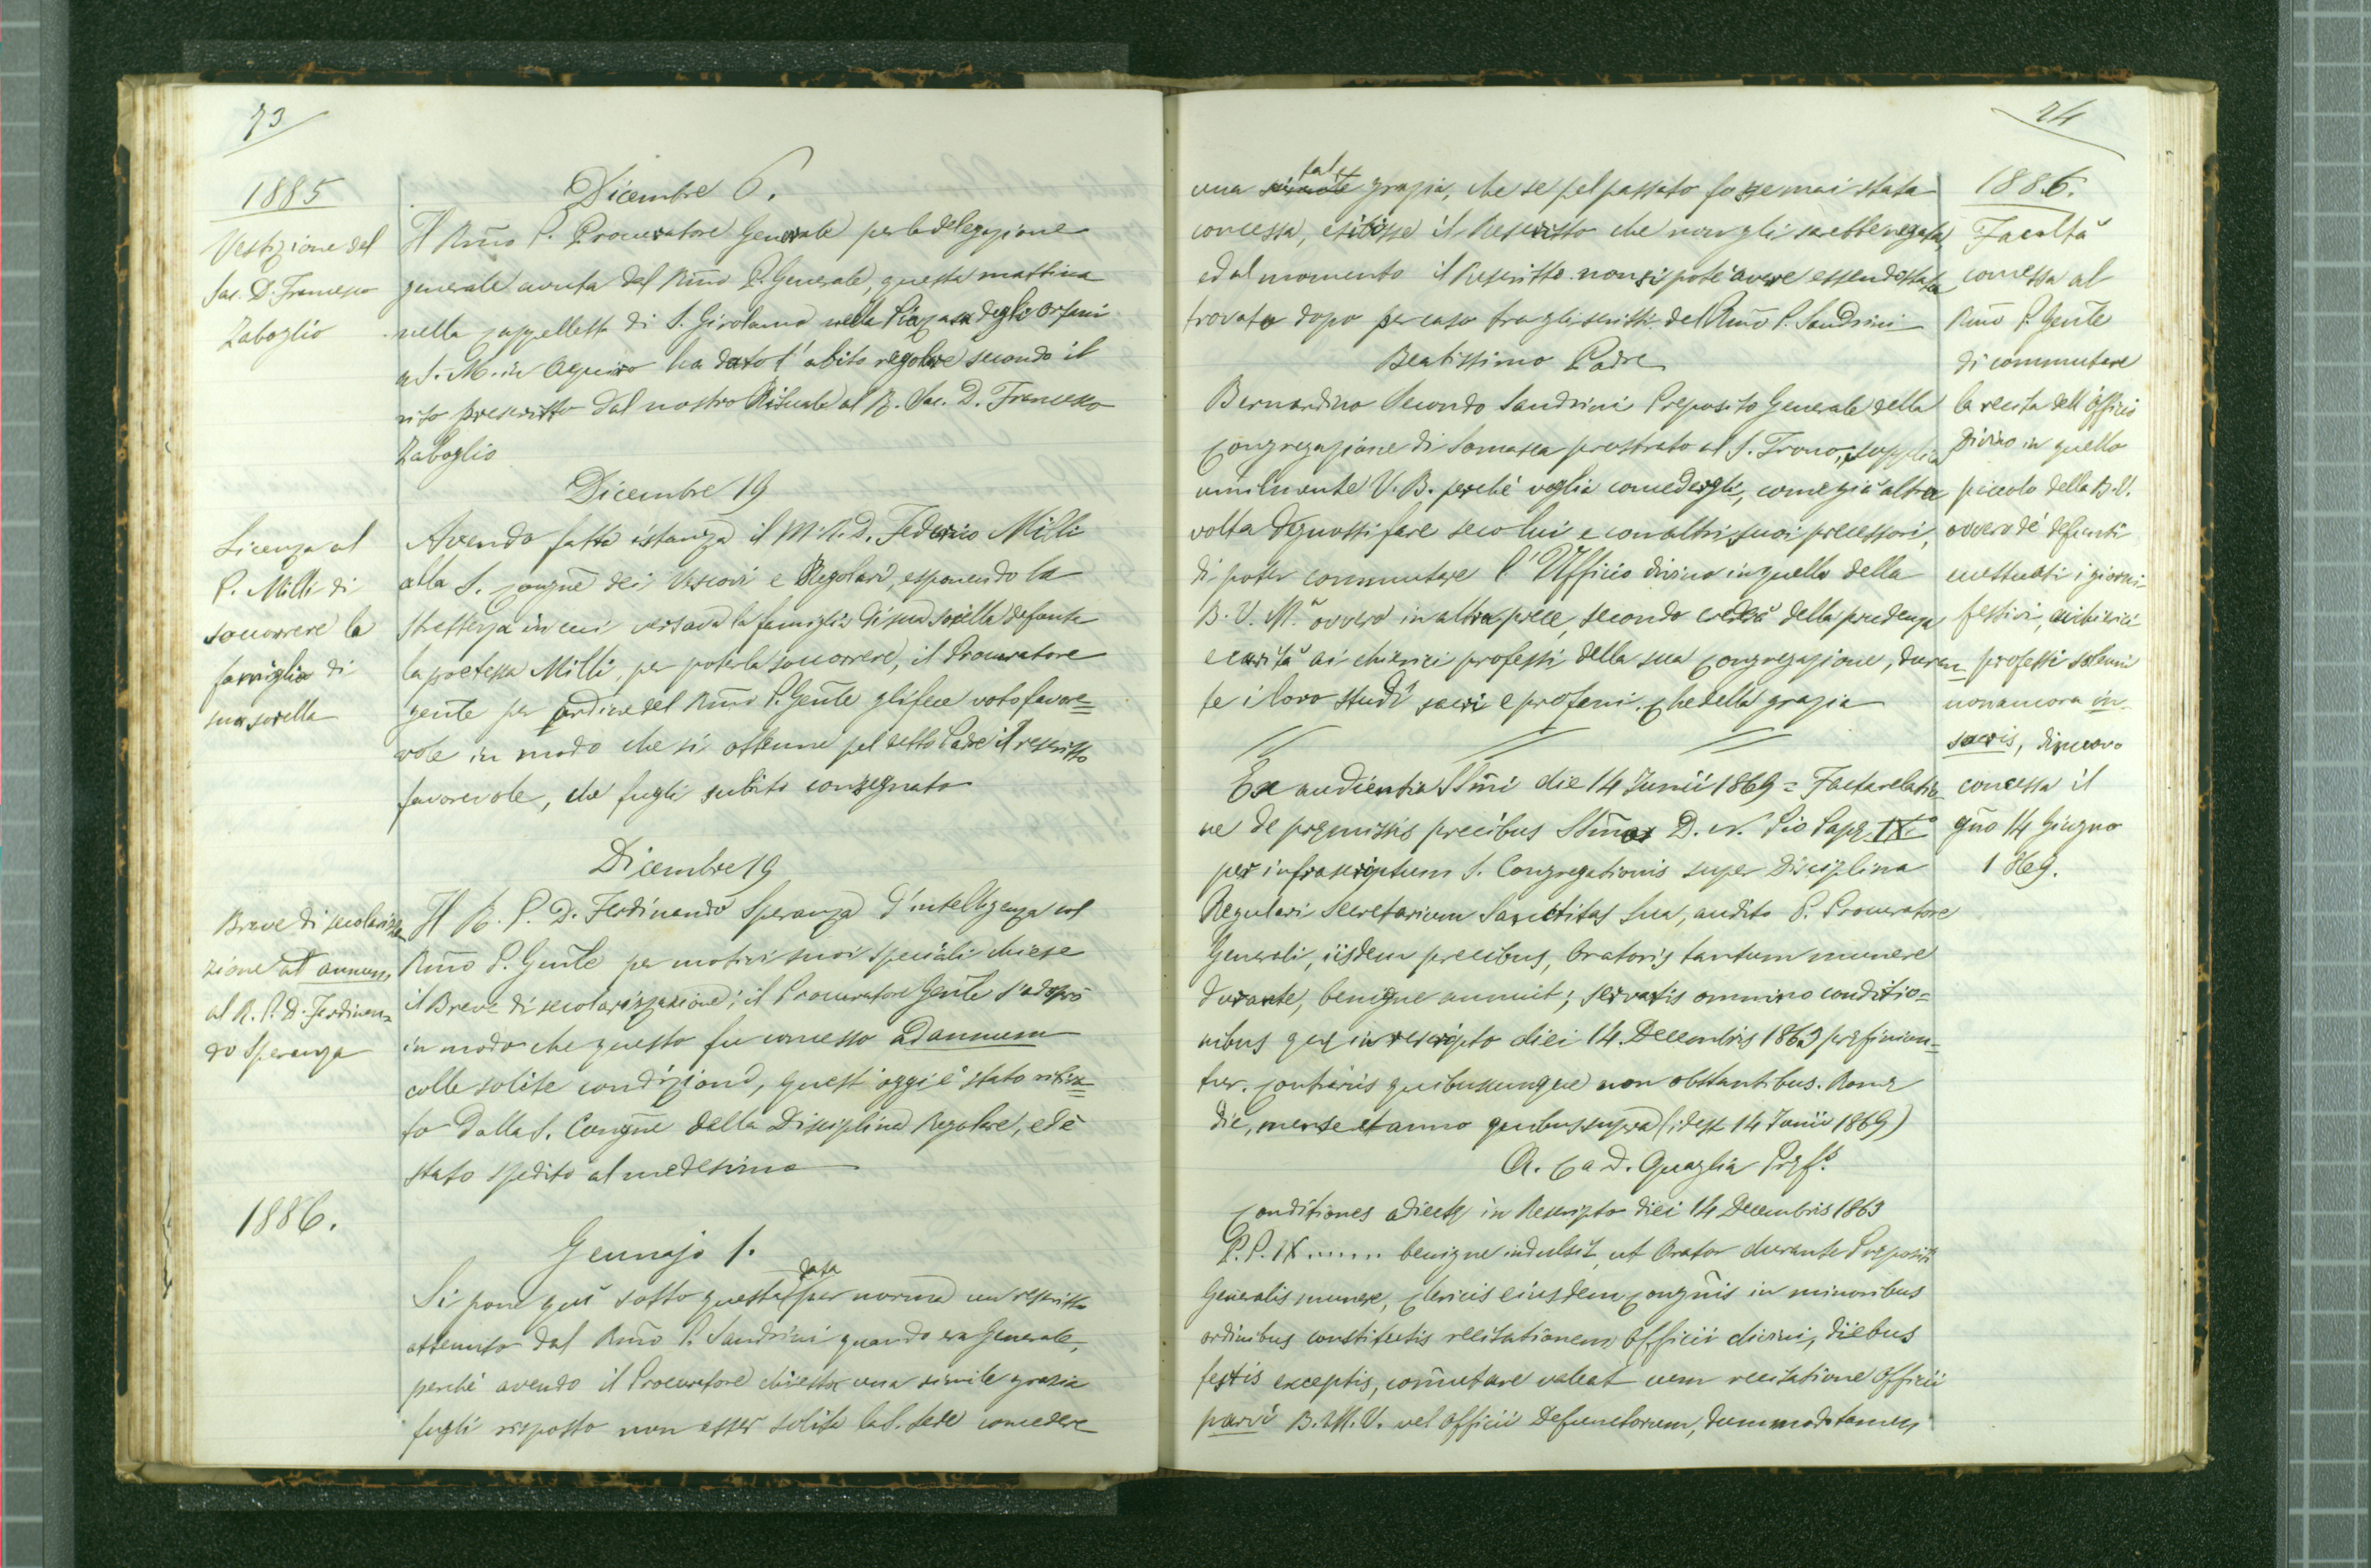 73
1885
Vestizione del
Sac. D. Francesco
Zaboglio
Dicembre 6.
Il Rm̃o P. Procuratore Generale per la delegazione
generale avuta dal Rm̃o P. Generale, questa mattina
nella cappelletta di S. Girolamo nella Pia Casa degli Orfani
a S. M. in Aquiro ha dato l'abito regolare secondo il
rito prescritto dal nostro Rituale al R. Sac. D. Francesco
Zaboglio
Licenza al
P. Milli di
soccorrere la
famiglia di
sua sorella
Dicembre 19
Avendo fatta istanza il M. R. D. Federico Milli
alla S. Congñe dei Vescovi e Regolari, esponendo la
strettezza in cui versava la famiglia di sua sorella defunta
la poetessa Milli, per poterla soccorrere, il Procuratore
geñle per ordine del Rm̃o P. Geñle gli fece voto favore=
vole in modo che si ottenne pel detto Padre il rescritto
favorevole, che fugli subito consegnato
Breve di secolariz=
zazione ad annum
al R. P. D. Ferdinan=
do Speranza
Dicembre 19
Il R. P. D. Ferdinando Speranza d'intelligenza col
Rm̃o P. Geñle per motivi suoi speciali chiese
il Breve di secolarizzazione; il Procuratore Geñle s'adoprò
in modo che questo fu concesso ad annum
colle solite condizioni, quest'oggi è stato ritira=
to dalla S. Congñe della Disciplina Regolare, ed è
stato spedito al medesimo
1886.
Gennajo 1.
Si pone quì sotto questa data per norma un rescritto
ottenuto dal Rm̃o P. Sandrini quando era Generale,
perchè avendo il Procuratore chiesta una simile grazia
fugli risposto non esser solita la S. Sede concedere
24
una simile tale grazia, che se pel passato fosse mai stata
concessa, esibisse il Rescritto che non gli sarebbe negata,
ed al momento il Rescritto non si potè avere essendo stato
trovato dopo per caso fra gli scritti del Rm̃o P. Sandrini
Beatissimo Padre
Bernardino Secondo Sandrini Preposito Generale della
Congregazione di Somasca prostrato al S. Trono, supplica
umilmente V. B. perchè voglia concedergli, come già altra
volta degnossi fare seco lui e con altri suoi precessori,
di poter commutare l'Uffizio divino in quello della
B. V. M.ª ovvero in altra prece, secondo crederà della prudenza
e carità ai chierici professi della sua Congregazione, duran=
te i loro studî sacri e profani. Che della grazia
Ex audientia SSm̃i die 14 Junii 1869 = Facta relatio=
ne de præmissis precibus SSm̃o D. N. Pio Papæ IXº
per infrascriptum S. Congregationis super Disciplina
Regulari Secretarium Sanctitas Sua, audito P. Procuratore
Generali, iisdem precibus, Oratoris tantum munere
durante, benigne annuit; servatis omnino conditio=
nibus quæ in rescripto diei 14 Decembris 1863 præfiniun=
tur. Contrariis quibuscumque non obstantibus. Romæ
die, mense et anno quibus supra (idest 14 Junii 1869)
A. Card. Quaglia Præf.s
Conditiones adiectæ in Rescripto diei 14 Decembris 1863
P. P. IX ....... benigne indulsit, ut Orator durante Præpositi
Generalis munere, clericis eiusdem congñis in minoribus
ordinibus constitutis recitationem Officii divini, diebus
festis exceptis, com̃utare valeat cum recitatione Officii
parvi B. M. V. vel Officii Defunctorum, dummodo tamen
1886.
Facoltà
concessa al
Rm̃o P. Geñle
di commutare
la recita dell'Officio
Divino in quello
piccolo della B. V.
ovvero de' defunti
eccettuati i giorni
festivi, ai chierici
professi solenni
non ancora in
sacris, di nuovo
concessa il
gño 14 Giugno
1869.